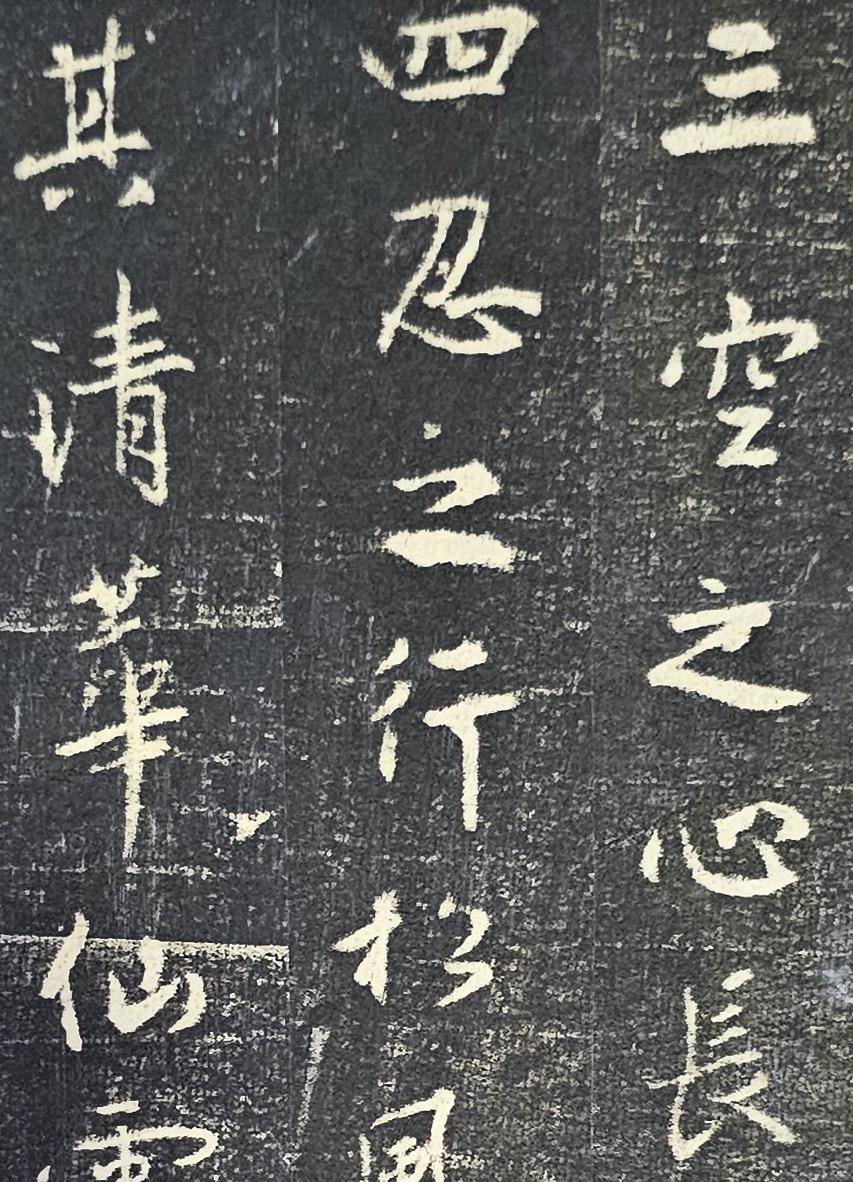 三空之心長
四忍之行松風
其清華仙露